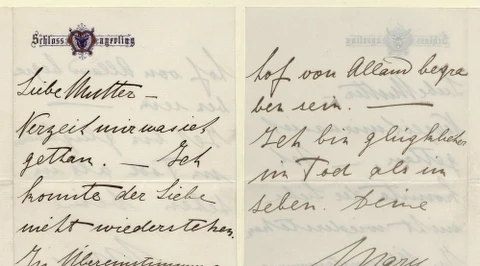 Schloss Mayerling
Liebe Mutter –
Verzeiht mir was ich
gethan. – Ich
konnte der Liebe
nicht wiederstehen.
In Übereinstimmung
hof von Alland begra
ben sein. —
Ich bin glücklicher
im Tod als im
Leben. Deine
Mary